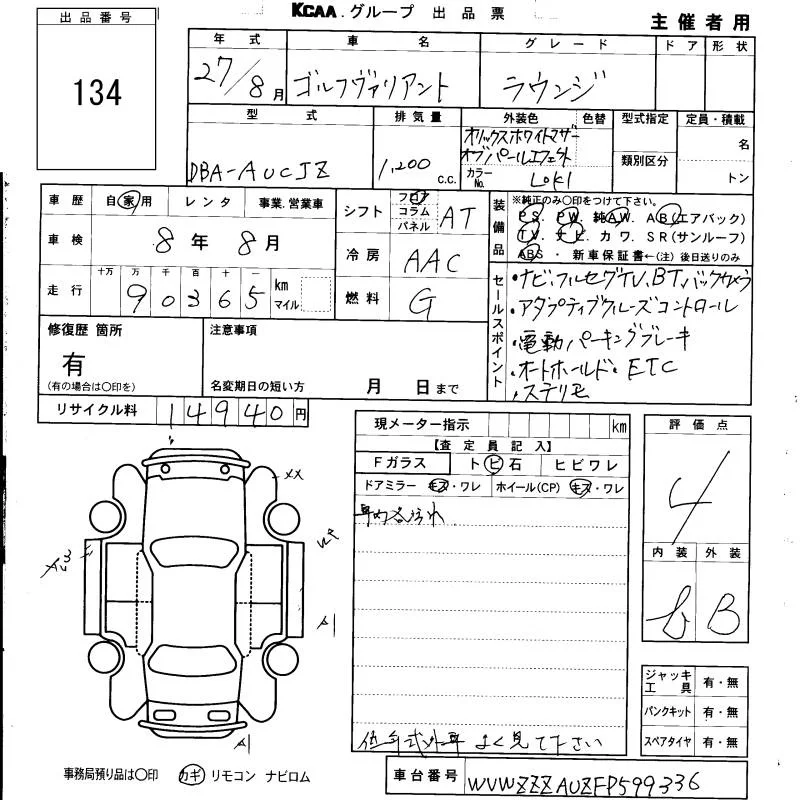 KCAA.グループ 出品票
主催者用
出品番号
134
年式 車名 グレード ドア 形状
27/8月 ゴルフヴァリアント ラウンジ
型式 排気量 外装色 色替 型式指定 定員・積載
DBA-AUCJZ 1,200 c.c. オリックスホワイトマザー
オブパールエフェクト
カラーNo. L0K1
類別区分
名
トン
車歴 自家用 レンタ 事業.営業車
車検 8年8月
十万 万 千 百 十 一
走行 90365 km マイル
シフト フロア コラム パネル AT
冷房 AAC
燃料 G
装備品
※純正のみ○印をつけて下さい。
PS. PW. 純AW. AB(エアバック)
TV. ナビ. カワ. SR(サンルーフ)
ABS ・ 新車保証書←(注)後日送りのみ
セールスポイント
・ナビ.フルセグTV.BT.バックカメラ
・アダプティブクルーズコントロール
・電動パーキングブレーキ
・オートホールド・ETC
・ステリモ
修復歴 箇所
有
(有の場合は○印を)
注意事項
名変期日の短い方 月 日まで
リサイクル料 14940円
現メーター指示 km
【査定員記入】
Fガラス トビ石 ヒビワレ
ドアミラー キズ・ワレ ホイール(CP) キズ・ワレ
車内汚れ
位牛式外専 よく見て下さい
評価点
4
内装 外装
b B
ジャッキ工具 有・無
パンクキット 有・無
スペアタイヤ 有・無
XX
A1
A1
事務局預り品は○印 カギ リモコン ナビロム
車台番号 WVWZZZAUZFP599336